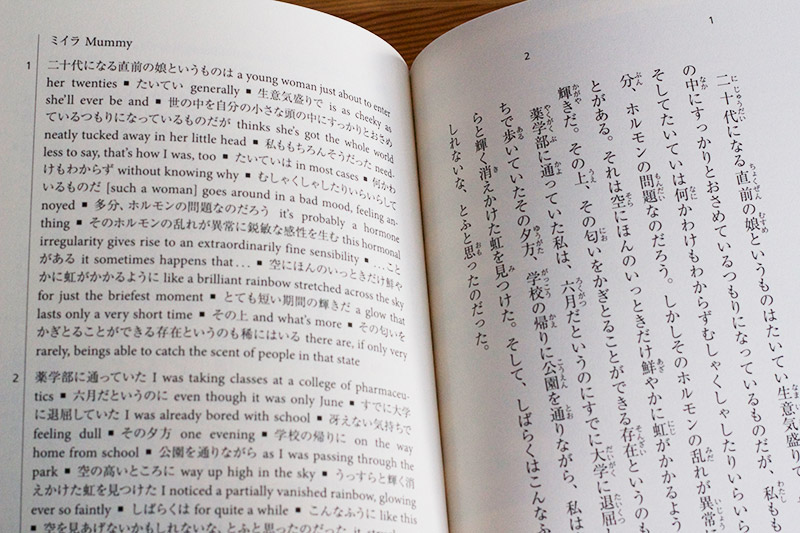 ミイラ Mummy
1 二十代になる直前の娘というものは a young woman just about to enter
her twenties ■ たいてい generally ■ 生意気盛りで is as cheeky as
she'll ever be and ■ 世の中を自分の小さな頭の中にすっかりとおさめ
ているつもりになっているものだが thinks she's got the whole world
neatly tucked away in her little head ■ 私ももちろんそうだった need-
less to say, that's how I was, too ■ たいていは in most cases ■ 何かわ
けもわからず without knowing why ■ むしゃくしゃしたりいらいらして
いるものだ [such a woman] goes around in a bad mood, feeling an-
noyed ■ 多分、ホルモンの問題なのだろう it's probably a hormone
thing ■ そのホルモンの乱れが異常に鋭敏な感性を生む this hormonal
irregularity gives rise to an extraordinarily fine sensibility ■ …こと
がある it sometimes happens that . . . ■ 空にほんのいっときだけ鮮や
かに虹がかかるように like a brilliant rainbow stretched across the sky
for just the briefest moment ■ とても短い期間の輝きだ a glow that
lasts only a very short time ■ その上 and what's more ■ その匂いを
かぎとることができる存在というのも稀にはいる there are, if only very
rarely, beings able to catch the scent of people in that state
2 薬学部に通っていた I was taking classes at a college of pharmaceu-
tics ■ 六月だというのに even though it was only June ■ すでに大学
に退屈していた I was already bored with school ■ 冴えない気持ちで
feeling dull ■ その夕方 one evening ■ 学校の帰りに on the way
home from school ■ 公園を通りながら as I was passing through the
park ■ 空の高いところに way up high in the sky ■ うっすらと輝く消
えかけた虹を見つけた I noticed a partially vanished rainbow, glowing
ever so faintly ■ しばらくは for quite a while ■ こんなふうに like this
■ 空を見あげないかもしれないな、とふと思ったのだった it
1
二十代になる直前の娘というものはたいてい生意気盛りで
の中にすっかりとおさめているつもりになっているものだが、私もも
そしてたいていは何かわけもわからずむしゃくしゃしたりいらいら
分、ホルモンの問題なのだろう。しかしそのホルモンの乱れが異常に
とがある。それは空にほんのいっときだけ鮮やかに虹がかかるよう
輝きだ。その上、その匂いをかぎとることができる存在というのも
2
薬学部に通っていた私は、六月だというのにすでに大学に退屈し
ちで歩いていたその夕方、学校の帰りに公園を通りながら、私は
らと輝く消えかけた虹を見つけた。そして、しばらくはこんなふ
しれないな、とふと思ったのだった。